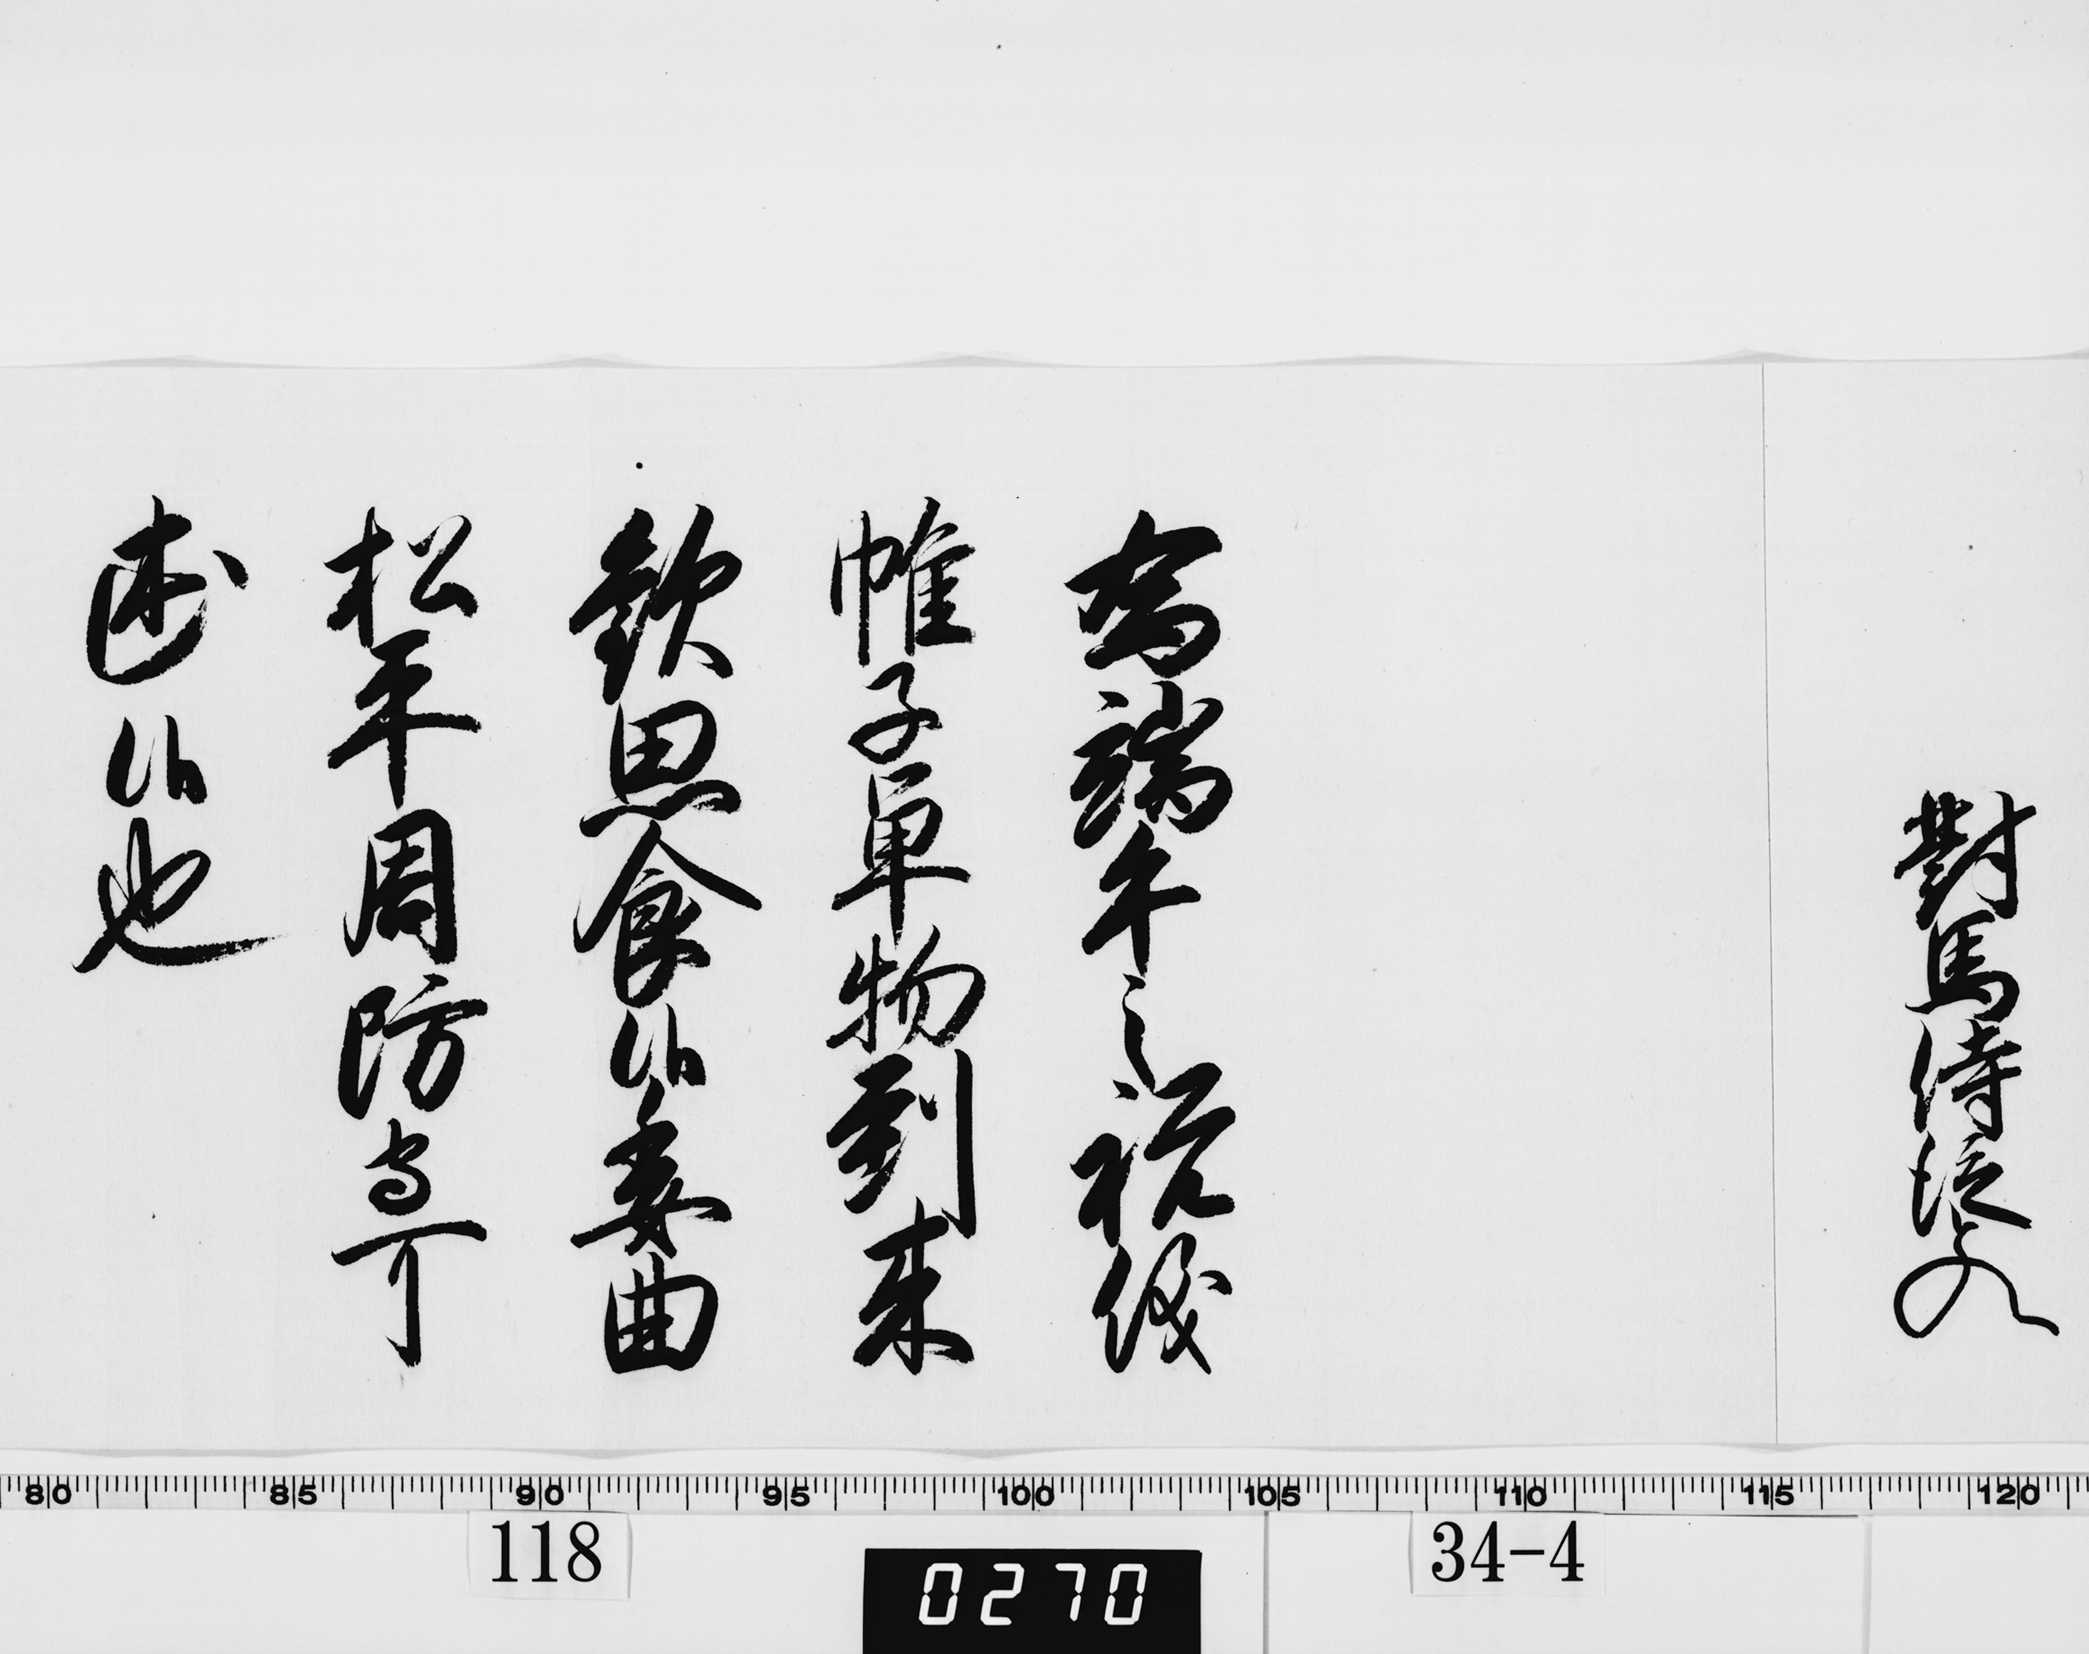 對馬侍従との
為端午之祝儀
帷子単物到来
歓思食候委曲
松平周防守可
述候也
80 85 90 95 100 105 110 115 120
118
0270
34-4